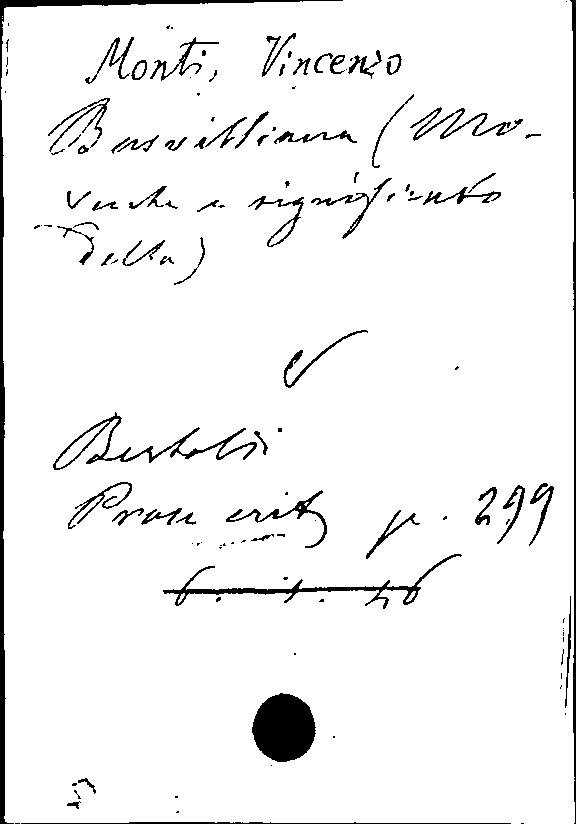 Monti, Vincenzo
Basvilliana (Mo-
vente e significato
della)
Bertoldi
Prose crit p. 299
6. 1. 46